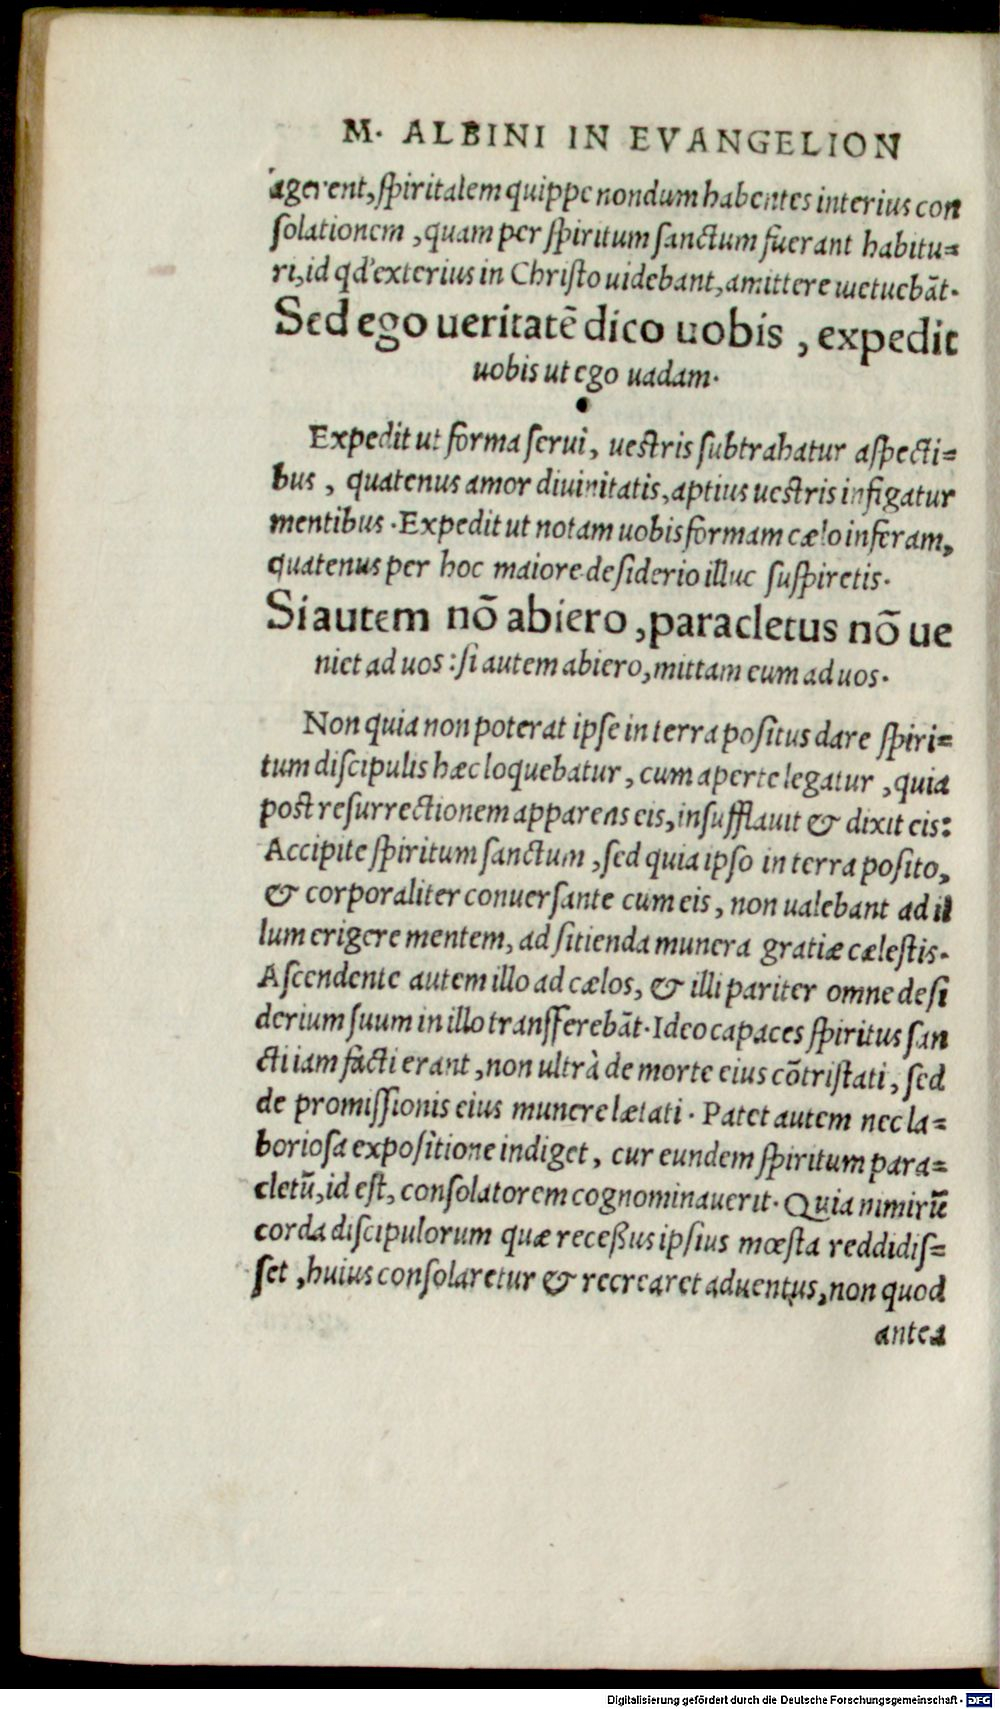 M. ALBINI IN EVANGELION
agerent, ſpiritalem quippe nondum habentes interius con
ſolationem, quam per ſpiritum ſanctum fuerant habitu=
ri, id qd' exterius in Chriſto uidebant, amittere metuebāt.
Sed ego ueritatē dico uobis, expedit
uobis ut ego uadam.
Expedit ut forma ſerui, ueſtris ſubtrahatur aſpecti=
bus, quatenus amor diuinitatis, aptius ueſtris infigatur
mentibus. Expedit ut notam uobis formam cælo inferam,
quatenus per hoc maiore deſiderio illuc ſuſpiretis.
Si autem nō abiero, paracletus nō ue
niet ad uos: ſi autem abiero, mittam eum ad uos.
Non quia non poterat ipſe in terra poſitus dare ſpiri=
tum diſcipulis hæc loquebatur, cum aperte legatur, quia
poſt reſurrectionem apparens eis, inſufflauit & dixit eis:
Accipite ſpiritum ſanctum, ſed quia ipſo in terra poſito,
& corporaliter conuerſante cum eis, non ualebant ad il
lum erigere mentem, ad ſitienda munera gratiæ cæleſtis.
Aſcendente autem illo ad cælos, & illi pariter omne deſi
derium ſuum in illo tranſferebāt. Ideo capaces ſpiritus ſan
cti iam facti erant, non ultrà de morte eius cōtriſtati, ſed
de promiſſionis eius munere lætati. Patet autem nec la=
borioſa expoſitione indiget, cur eundem ſpiritum para=
cletū, id eſt, conſolatorem cognominauerit. Quia nimirū
corda diſcipulorum quæ receßus ipſius mœſta reddidiſ=
ſet, huius conſolaretur & recrearet aduentus, non quod
antea
Digitalisierung gefördert durch die Deutsche Forschungsgemeinschaft - DFG